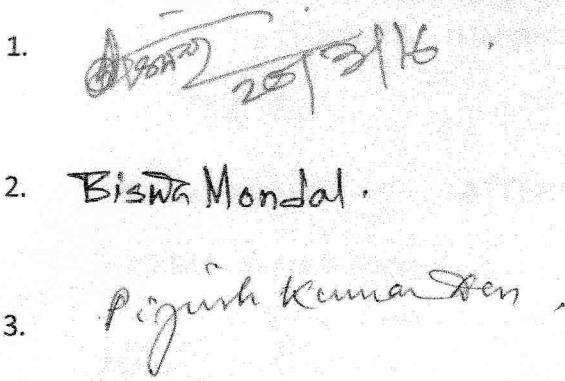 1. 20/3/16
2. Biswa Mondal.
3. Pijush Kumar Sen.